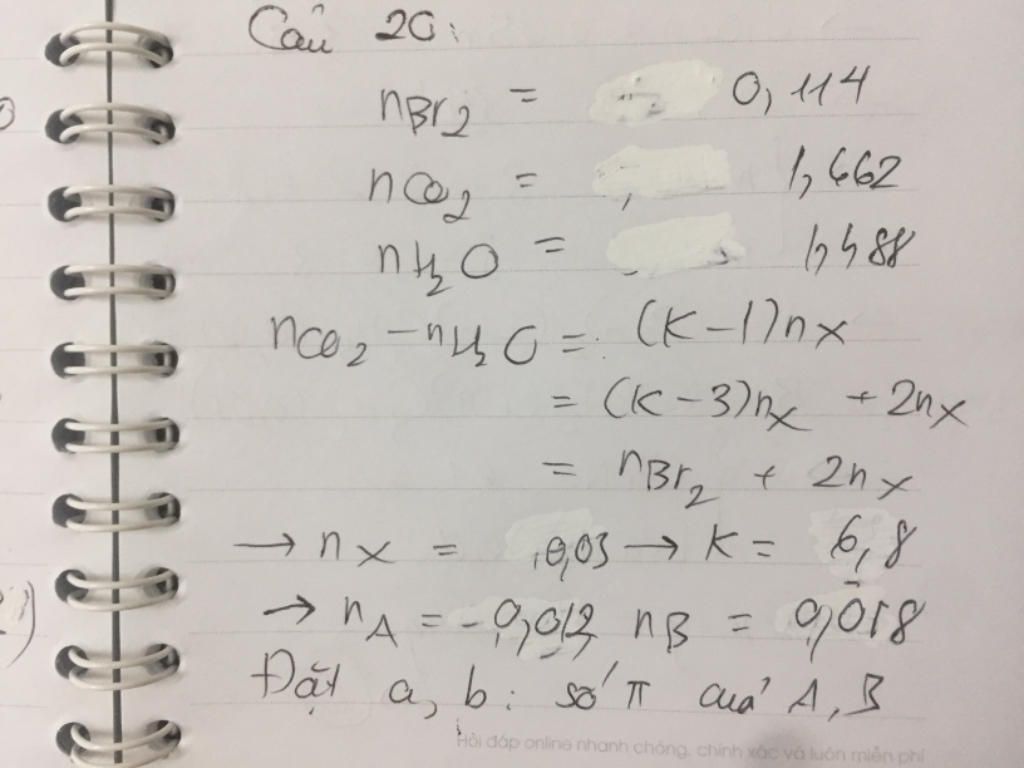 Câu 20:
nBr2 = 0,114
nCO2 = 1,662
nH2O = 1,488
nCO2 - nH2O = (K-1)nX
= (K-3)nX + 2nX
= nBr2 + 2nX
→ nX = 0,03 → K = 6,8
→ nA = 0,012 nB = 0,018
Đặt a, b : số π của A, B
Hỏi đáp online nhanh chóng, chính xác và luôn miễn phí